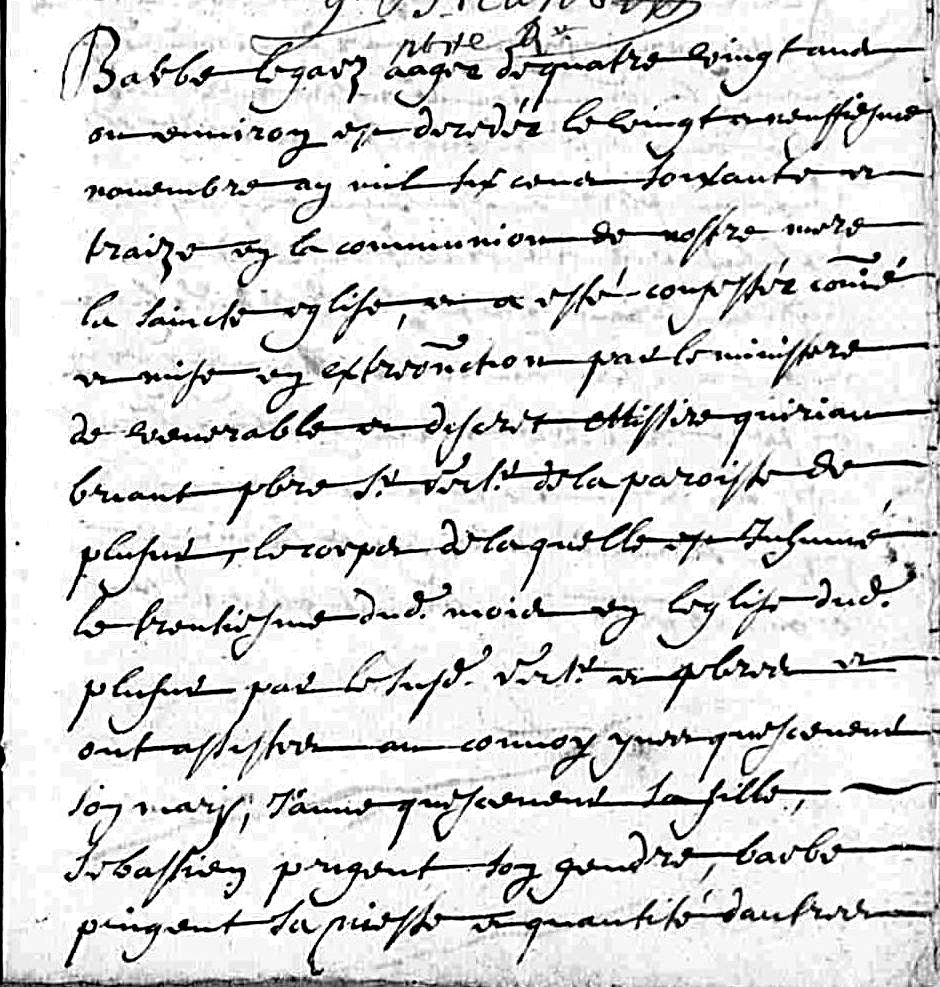 Barbe legarz aagee de quatre vingt ans
ou environ est decedée le vingt et neuffiesme
novembre an mil six cens soixante et
traize en la communion de nostre mere
la saincte eglise, et a esté confessée comïé
et mise en extreonction par le ministere
de venerable et discret Missire quirian
briant pbre Sr vert de la paroisse de
plusne, le corps de laquelle est Inhumé
le trentiesme dud. mois en leglise dud.
plusne par le susd. et pbres et
ont assistes au convoy yves quescenent
son mary, Janne quescenent sa fille,
Sebastien prigent son gendre, barbe
prigent sa niesse et quantité dautres